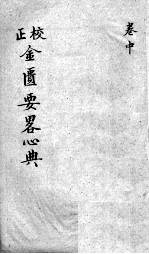 卷中
校正
金匱要畧心典